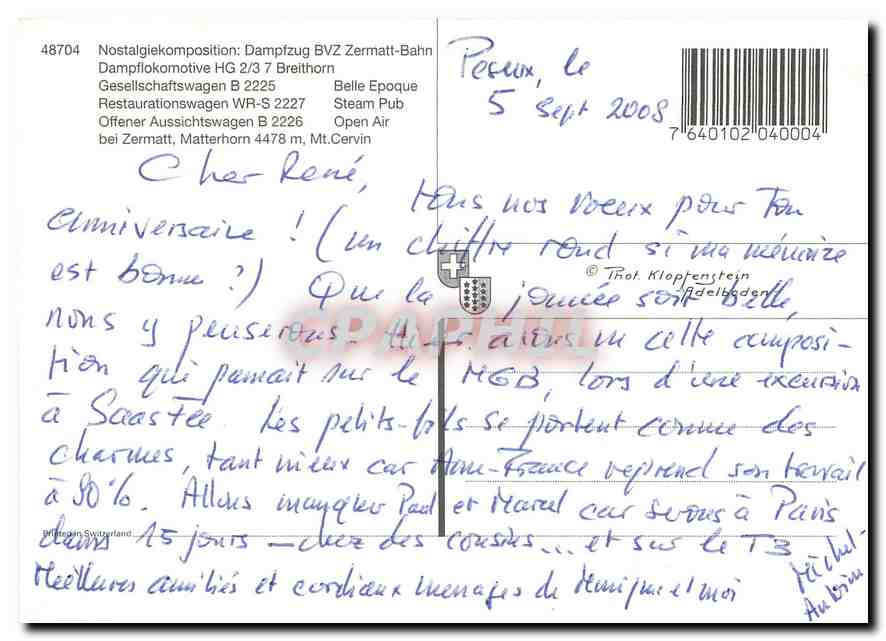 48704 Nostalgiekomposition: Dampfzug BVZ Zermatt-Bahn
Dampflokomotive HG 2/3 7 Breithorn
Gesellschaftswagen B 2225 Belle Epoque
Restaurationswagen WR-S 2227 Steam Pub
Offener Aussichtswagen B 2226 Open Air
bei Zermatt, Matterhorn 4478 m, Mt.Cervin
Peseux, le
5 Sept 2008
7 640102 040004
Cher René,
tous nos voeux pour Ton
anniversaire ! (un chiffre rond si ma mémoire
est bonne ?) Que la journée soit belle,
© Phot. Klopfenstein
Adelboden
nous y penserons. Hier avons vu cette composi-
CPAPHIL
tion qui passait sur le MGB, lors d'une excursion
à Saas Fee. Les petits-fils se portent comme des
charmes, tant mieux car Anne-France reprend son travail
à 90%. Allons manquer Paul et Marcel car serons à Paris
Printed in Switzerland
dans 15 jours — chez des cousins... et sur le T3
Meilleures amitiés et cordiaux messages de et moi
Michel-